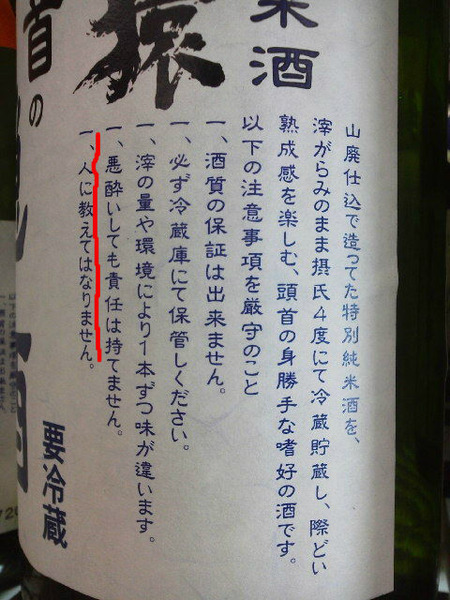 米酒
猿
首の
山廃仕込で造ってた特別純米酒を、
滓がらみのまま摂氏4度にて冷蔵貯蔵し、際どい
熟成感を楽しむ、頭首の身勝手な嗜好の酒です。
以下の注意事項を厳守のこと
一、酒質の保証は出来ません。
一、必ず冷蔵庫にて保管しください。
一、滓の量や環境により1本ずつ味が違います。
一、悪酔いしても責任は持てません。
一、人に教えてはなりません。
要冷蔵